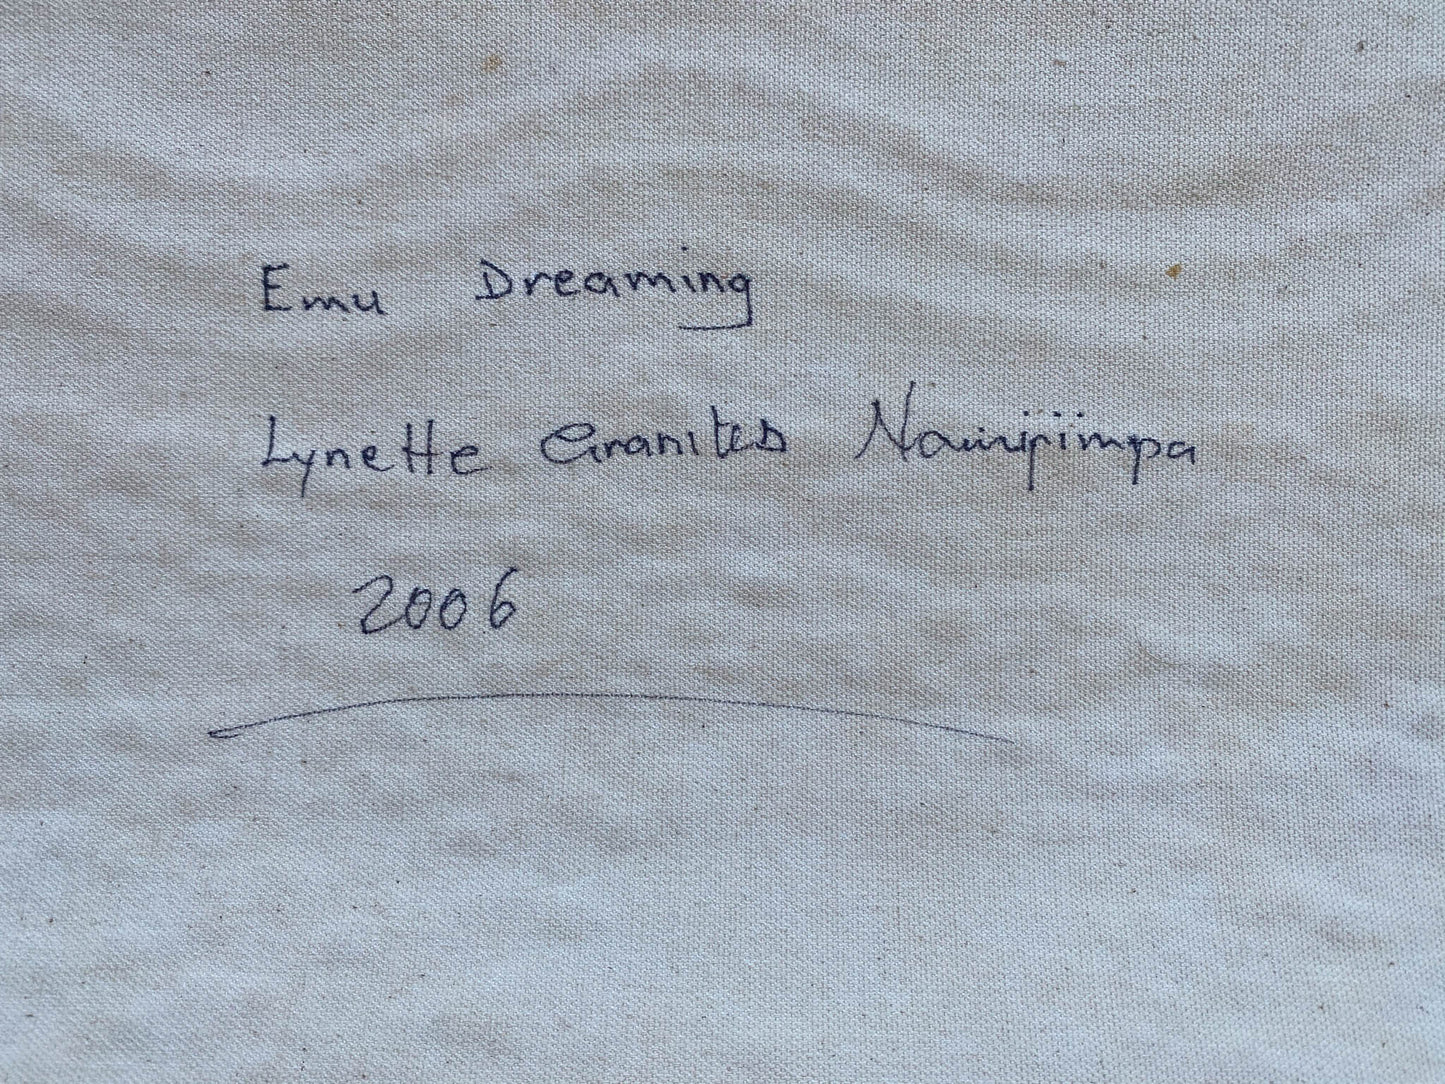 Emu Dreaming
Lynette Granites
2006